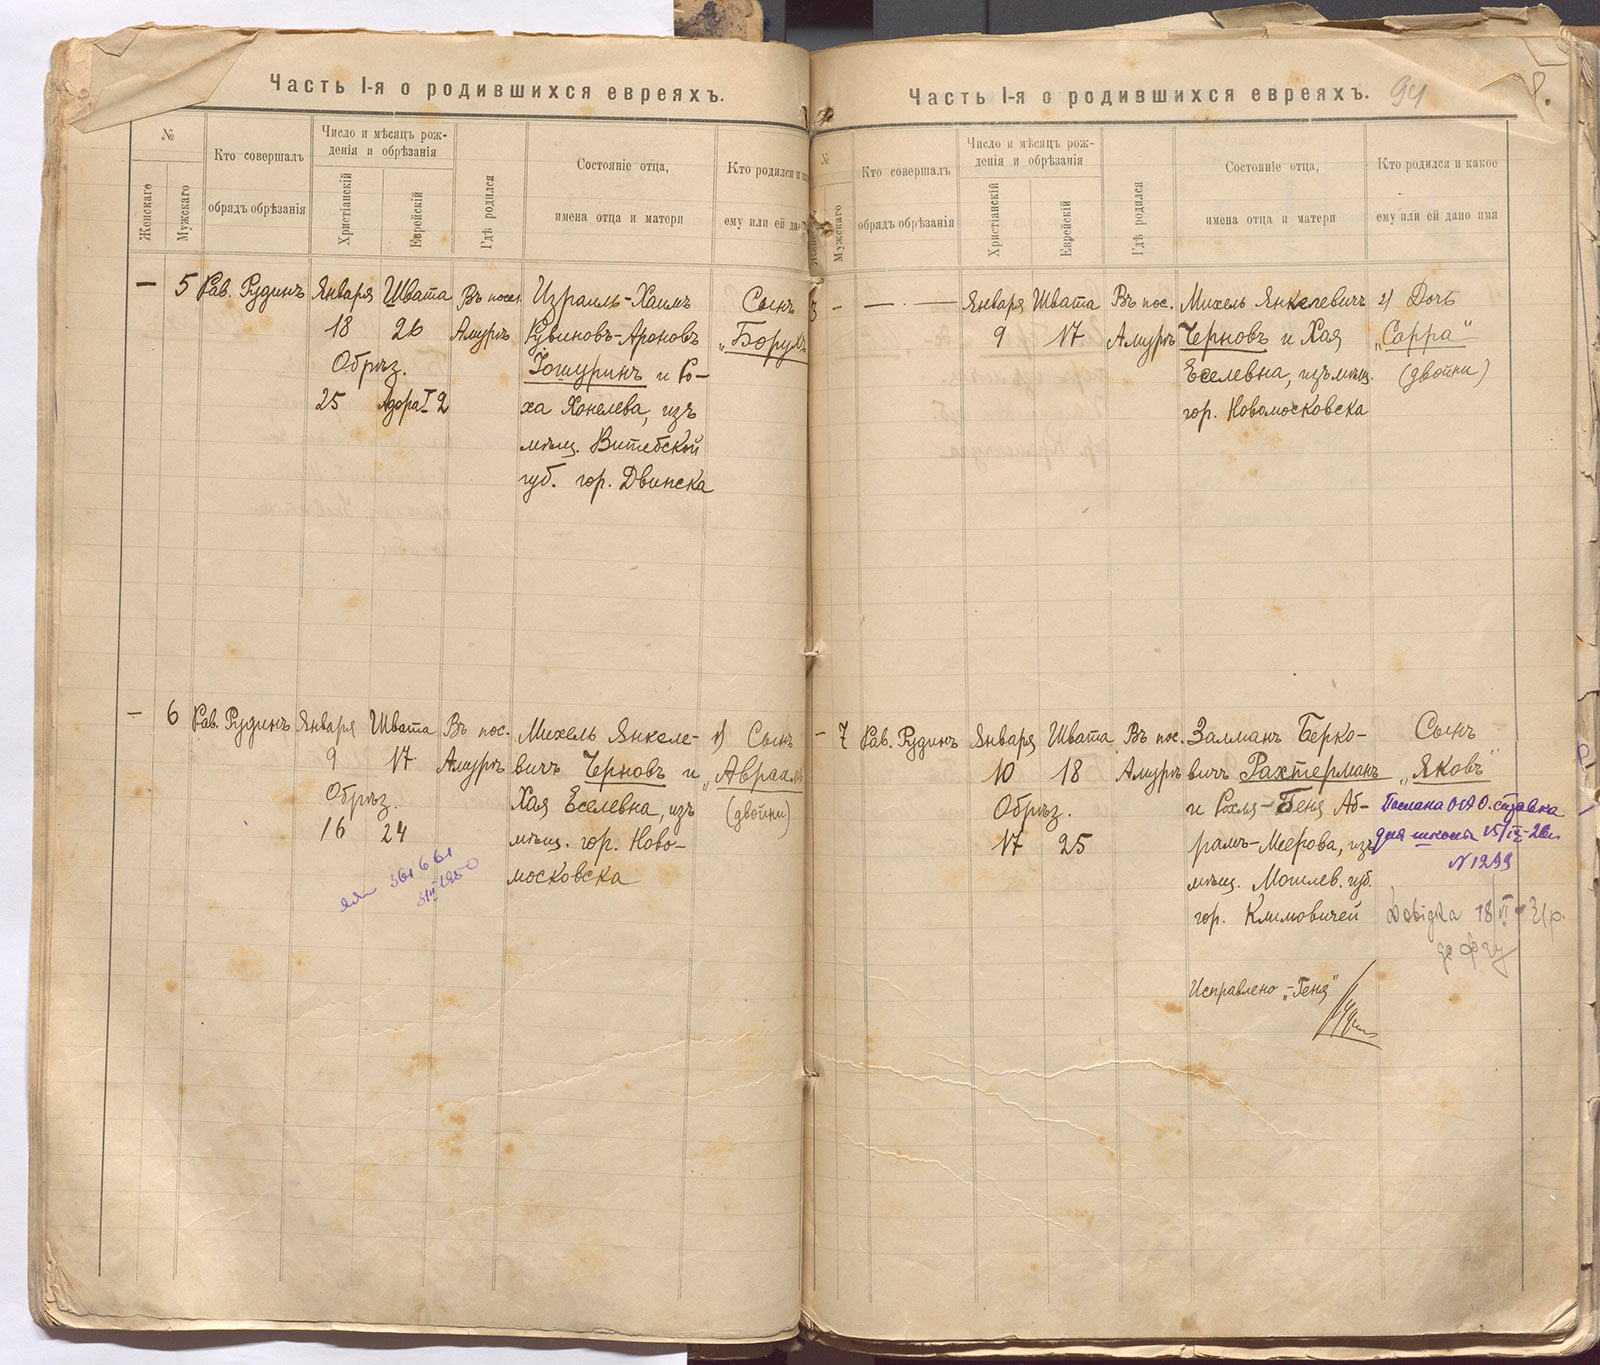 Часть I-я о родившихся евреяхъ.
№
Женскаго
Мужскаго
Кто совершалъ
обрядъ обрѣзанія
Число и мѣсяцъ рож-
денія и обрѣзанія
Христіанскій
Еврейскій
Гдѣ родился
Состояніе отца,
имена отца и матери
Кто родился и
ему или ей дано
— 5 Рав. Рудинъ Января Швата Въ посел. Израиль-Хаимъ Сынъ
18 26 Амуръ Рувиновъ-Ароновъ „Борухъ
Обрѣз. Гошуринъ и Ро-
25 Адара I 2 ха Хонелева, изъ
мѣщ. Витебской
губ. гор. Двинска
— 6 Рав. Рудинъ Января Швата Въ пос. Михель Янкеле- 1) Сынъ
9 17 Амуръ вичъ Черновъ и „Авраамъ
Обрѣз. Хая Еселевна, изъ (двойни)
16 24 мѣщ. гор. Ново-
московска
361661
Часть I-я о родившихся евреяхъ. 94
№
Мужскаго
Кто совершалъ
обрядъ обрѣзанія
Число и мѣсяцъ рож-
денія и обрѣзанія
Христіанскій
Еврейскій
Гдѣ родился
Состояніе отца,
имена отца и матери
Кто родился и какое
ему или ей дано имя
3 — — · — Января Швата Въ пос. Михель Янкелевичъ 2) Дочь
9 17 Амуръ Черновъ и Хая „Сарра“
Еселевна, изъ мѣщ. (двойни)
гор. Новомосковска
— 7 Рав. Рудинъ Января Швата Въ пос. Залманъ Берко- Сынъ
10 18 Амуръ вичъ Рахтерманъ „Яковъ“
Обрѣз. и Рохля-Геня Аб-
17 25 рамъ-Меерова, изъ
мѣщ. Могилев. губ.
гор. Климовичей
Послана справка
для школы
N 1299
Исправлено „-Геня“